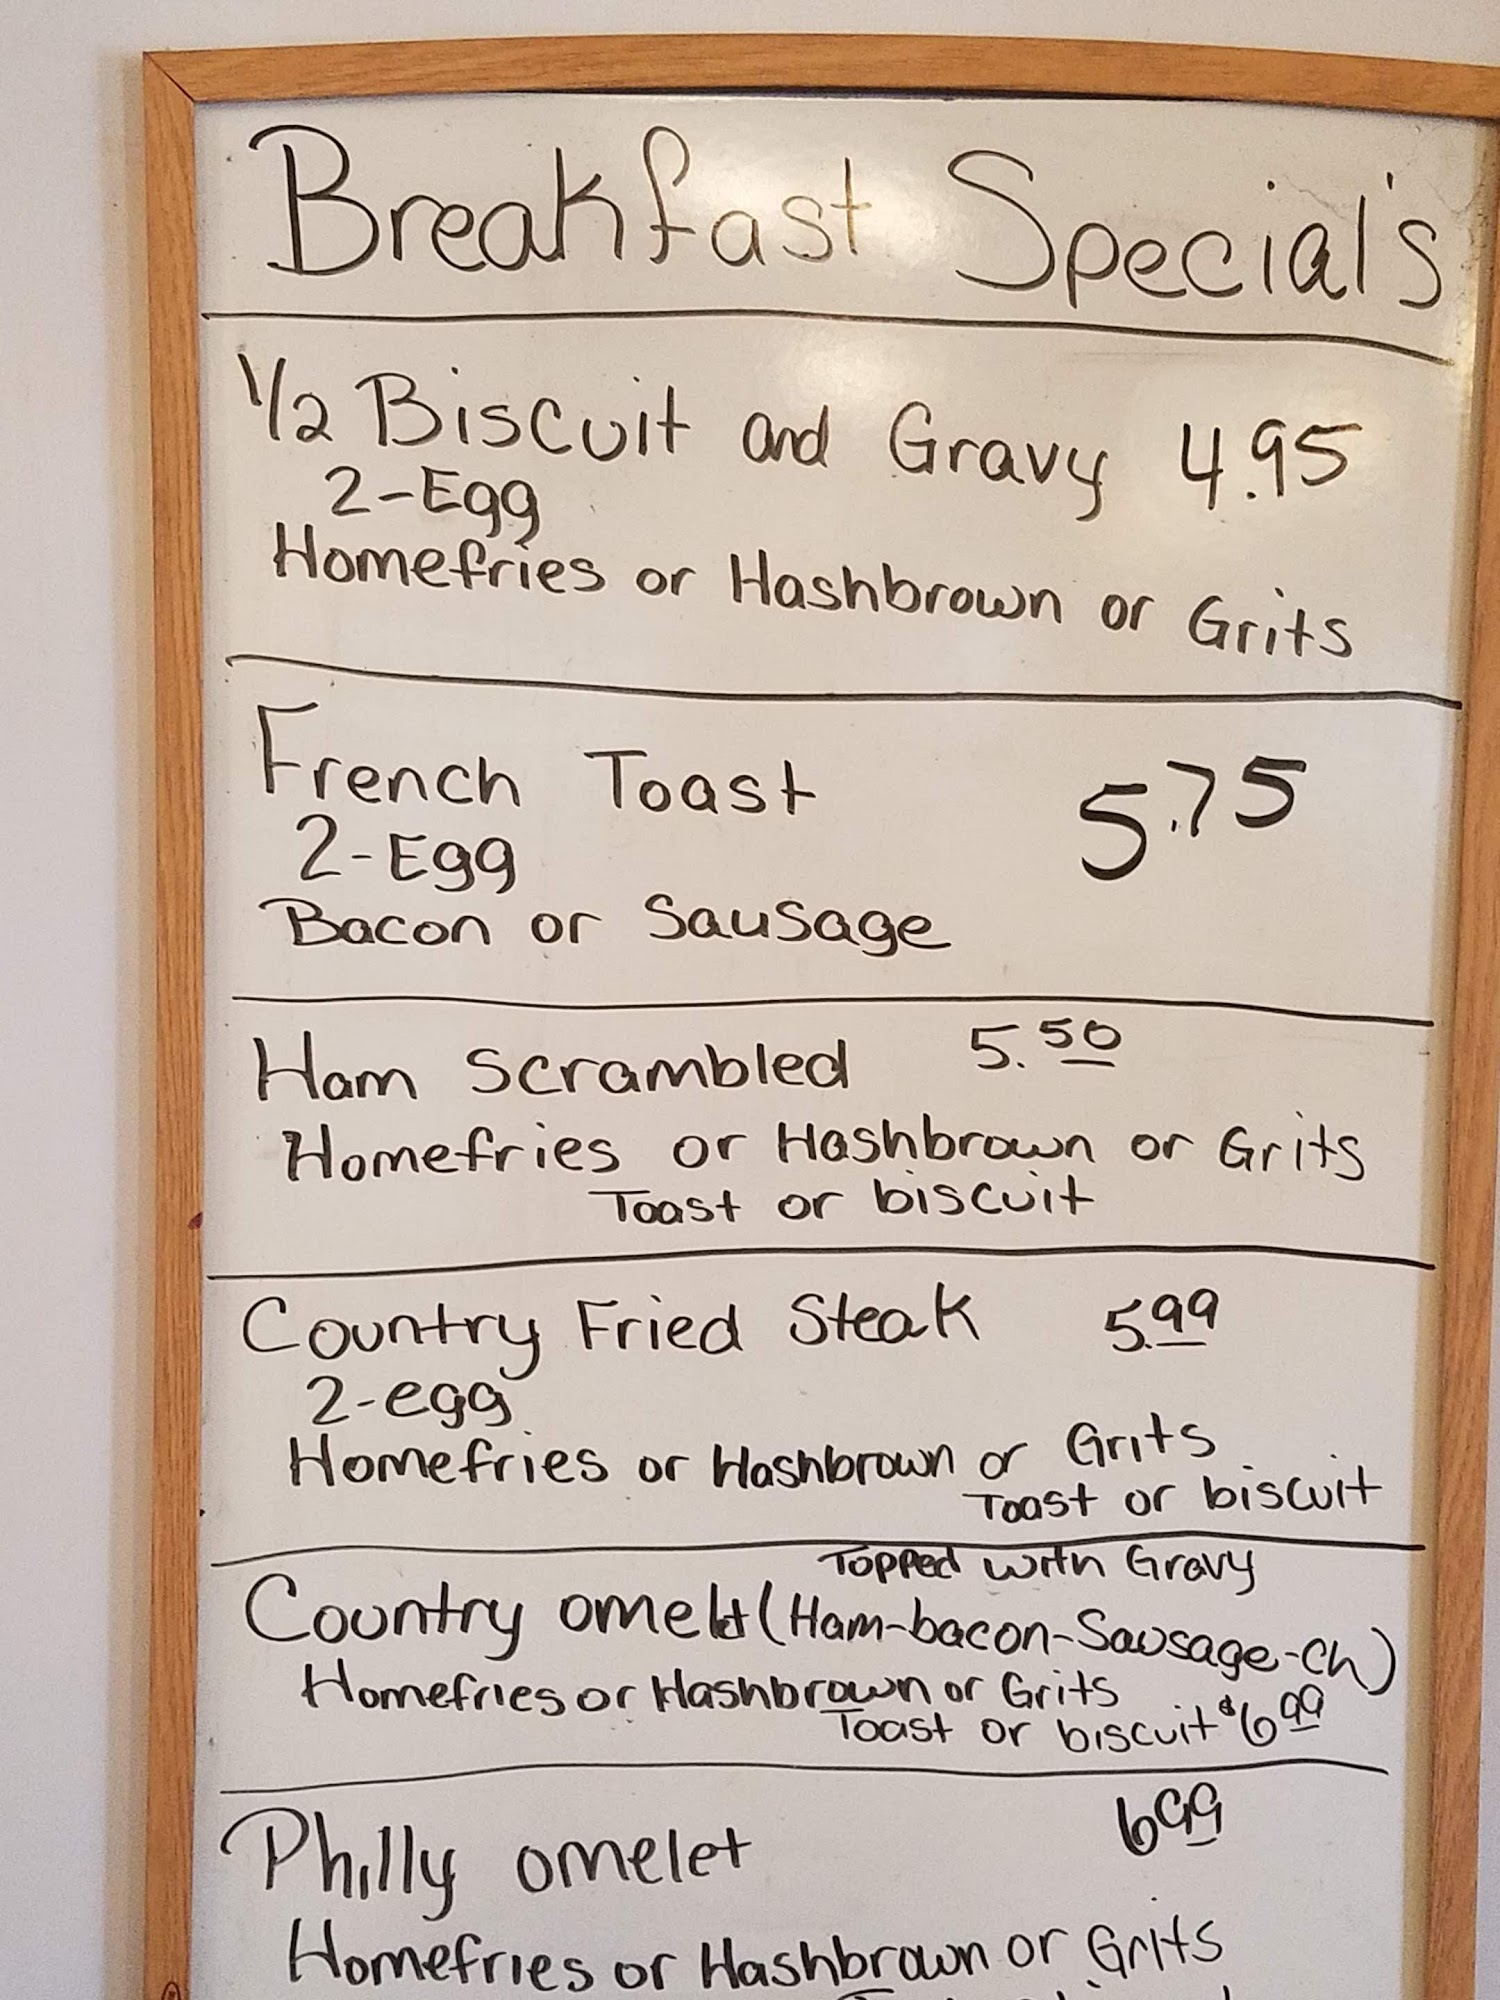 Breakfast Special's
1/2 Biscuit and Gravy 4.95
2-Egg
Homefries or Hashbrown or Grits
French Toast 5.75
2-Egg
Bacon or Sausage
Ham Scrambled 5.50
Homefries or Hashbrown or Grits
Toast or biscuit
Country Fried Steak 5.99
2-egg
Homefries or Hashbrown or Grits
Toast or biscuit
Topped with Gravy
Country omelet (Ham-bacon-Sausage-Ch)
Homefries or Hashbrown or Grits
Toast or biscuit $6.99
Philly omelet 6.99
Homefries or Hashbrown or Grits